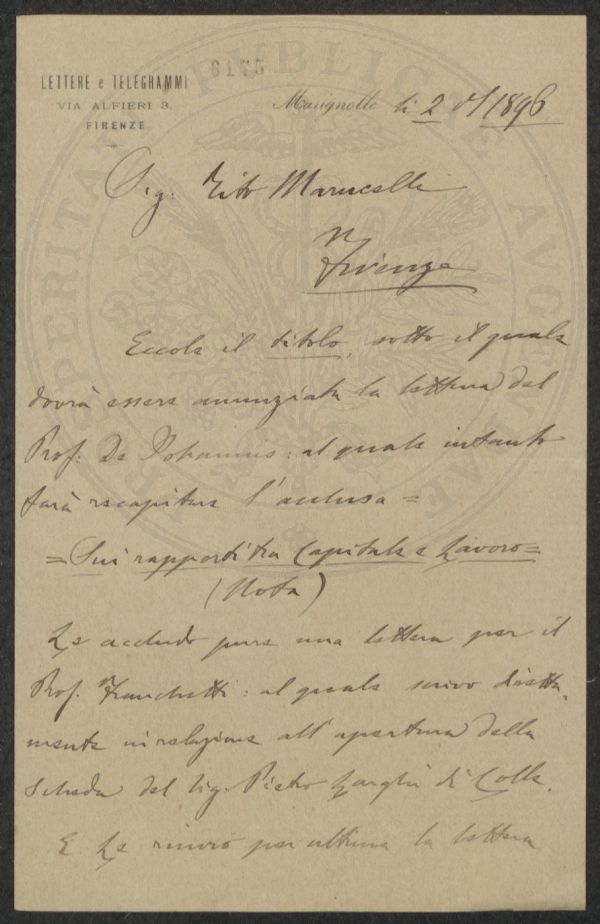 6175
LETTERE e TELEGRAMMI
VIA ALFIERI 3.
FIRENZE
PROSPERITATI PUBLICAE AVGENDAE
Marignolle li 2 1896
Sig. Tito Marucelli
Firenze
Eccole il titolo, sotto il quale
dovrà essere annunziata la lettura del
Prof. De Johannis: al quale intanto
farà recapitare l'acclusa =
= Sui rapporti tra Capitale e Lavoro =
(Nota)
Le accludo pure una lettera per il
Prof. Franchetti: al quale scrivo diretta-
mente in relazione all'apertura della
Scheda del Sig. Pietro di Colle.
E Le rinvio per ultimo la lettera